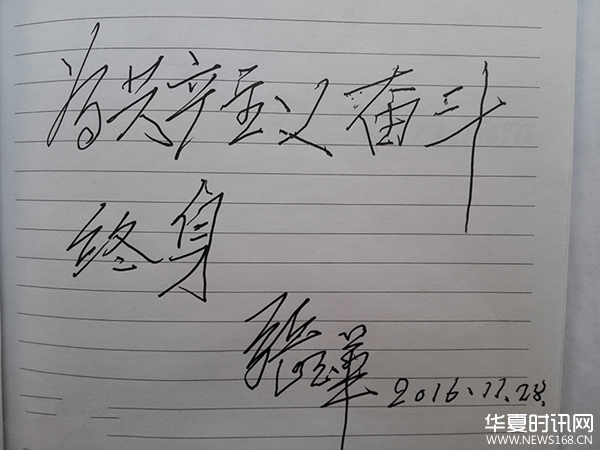 为共产主义奋斗
终身
2016.11.28.
华夏时讯网
WWW.NEWS168.CN